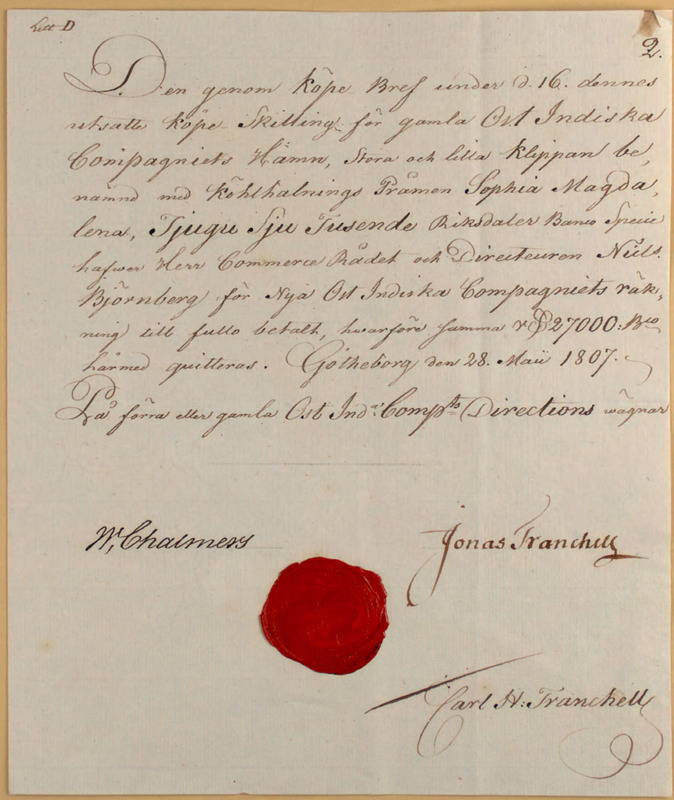 Litt D
2.
Den genom köpe Bref under d. 16. dennes
utsatte köpe Skilling för gamla Ost Indiska
Compagniets Hamn, Stora och lilla Klippan be,
nämnd med Kohlhalnings Pråmen Sophia Magda,
lena, Tjugu Sju Tusende Riksdaler Banco Specie
hafwer Herr Commerce Rådet och Directeuren Niels
Björnberg för Nya Ost Indiska Compagniets räk,
ning till fullo betalt, hwarföre samma 27000: Bco
härmed quitteras. Götheborg den 28. Maii 1807.
På förra eller gamla Ost Ind: Comp Directions wägnar
Wm Chalmers
Jonas Tranchell
Carl H: Tranchell